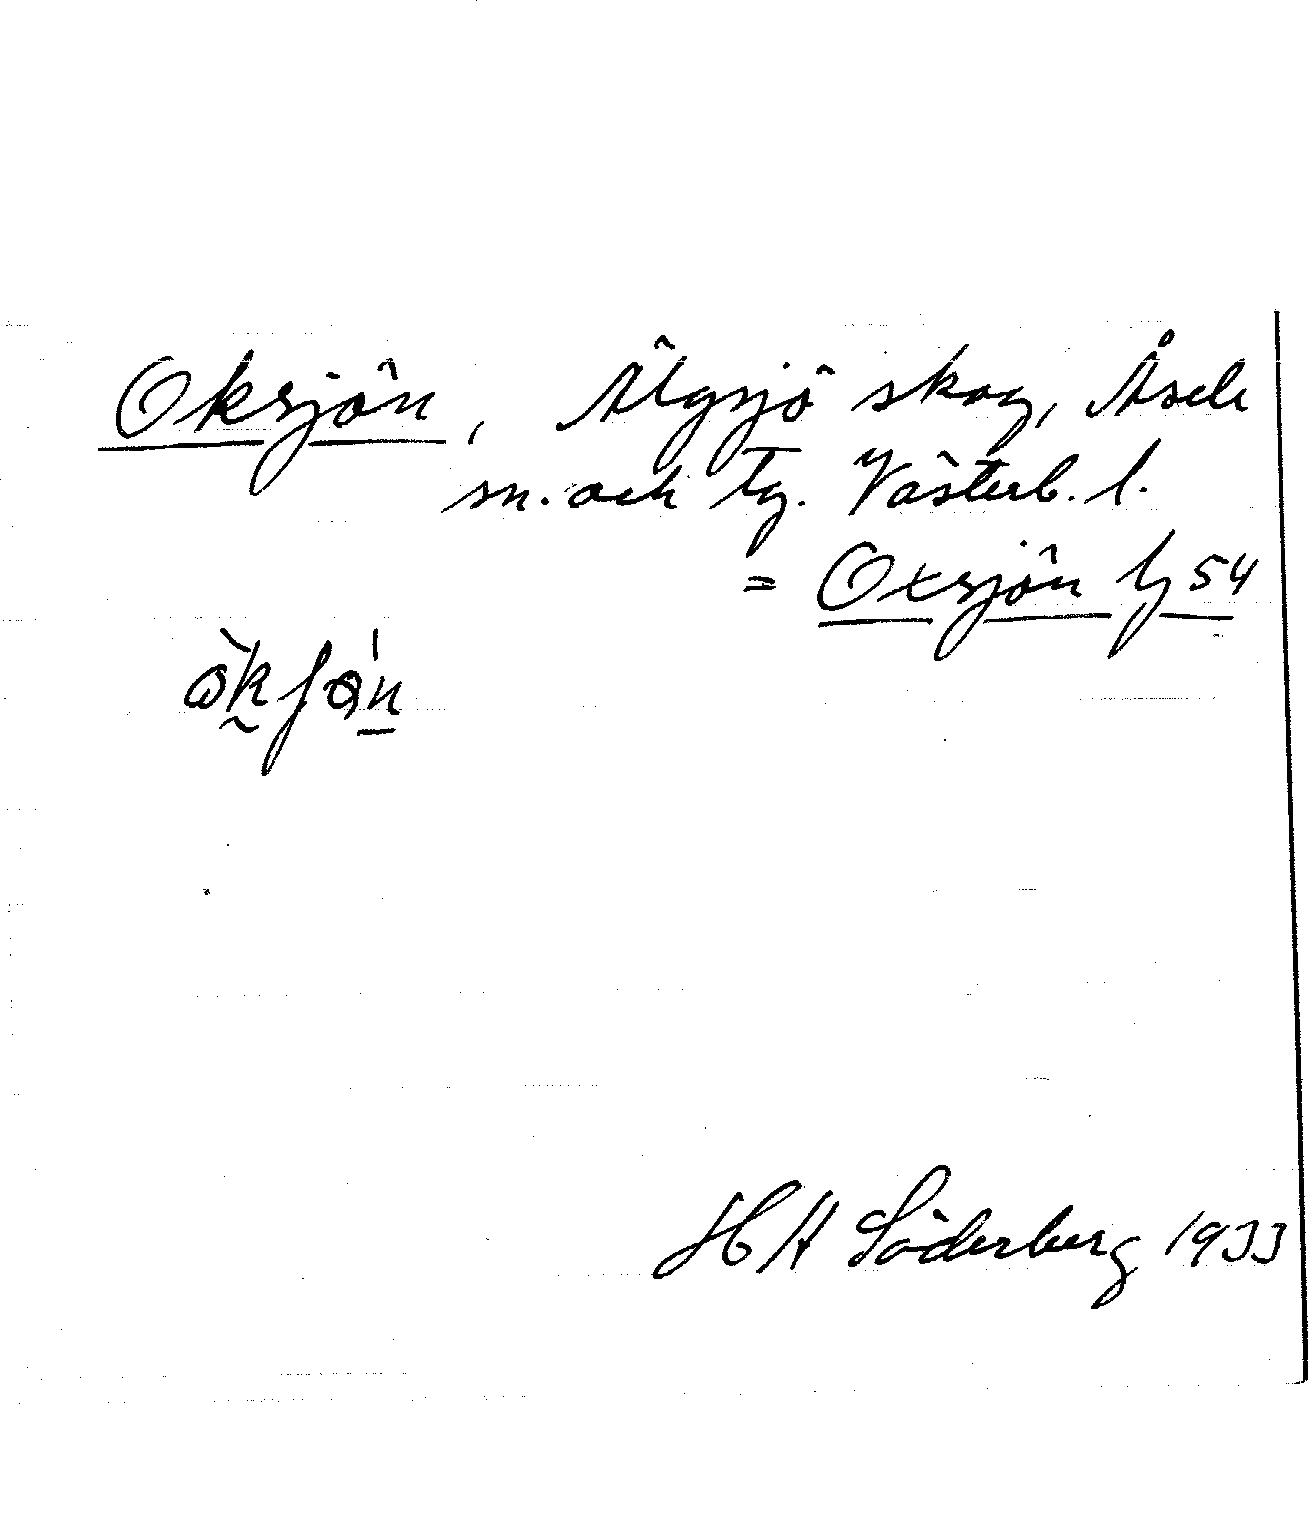 Oksjön, Älgsjö skog, Åsele
sn. och tg. Västerb. l.
= Oxsjön 54
H H Söderberg 1933